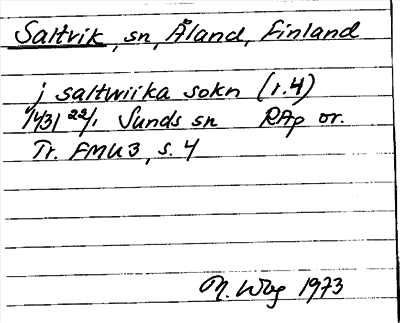 Saltvik, sn, Åland, Finland
j saltwiika sokn (r.4)
1431 22/1 Sunds sn RAp or.
Tr. FMU 3, s. 4
M. Wbg 1973